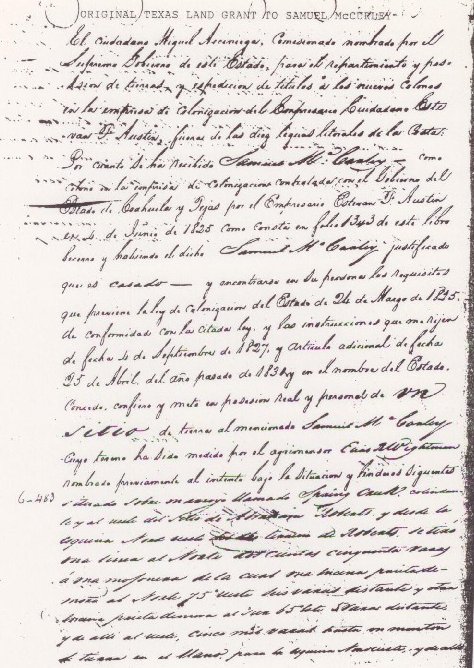 ORIGINAL TEXAS LAND GRANT TO SAMUEL McCURLEY
El ciudadano Miguel Arciniega, Comisionado nombrado por el
Supremo Gobierno de este Estado, para el repartimiento y pose-
sion de tierras y espedicion de titulos á los nuevos Colonos
en la empresa de colonizacion del Empresario Ciudadano Este-
van F. Austin, fuera de las diez leguas litorales de la Costa.
Por cuanto se ha recibido Samuel Mc Curley como
colono en la empresa de colonizacion contratada con el Gobierno del
Estado de Coahuila y Tejas por el Empresario Estevan F. Austin
en 4 de Junio de 1825 como consta en folio 1343 de este libro
becerro y habiendo el dicho Samuel Mc Curley justificado
que es casado — y encontrarse en su persona los requisitos
que previene la ley de colonizacion del Estado de 24 de Marzo de 1825,
de conformidad con la citada ley, y las instrucciones que me rijen
de fecha 4 de Septiembre de 1827, y articulo adicional de fecha
25 de Abril, del año pasado de 1830 y en el nombre del Estado,
Concedo, confiero y meto en posesion real y personal de un
sitio de tierra al mencionado Samuel Mc Curley
Cuyo terreno ha sido medido por el agrimensor Elias R Wightman
nombrado previamente al intento bajo la situacion y linderos siguientes
6-483
situado sobre un arroyo llamado Spring Creek, colinda-
al oeste del sitio de Abraham Roberts, y desde la
esquina de Roberts, se tiró
una linea al Norte dos mil cincuenta varas
a una mojonera de la cual una encina
al Norte 75 oeste seis varas distante y otra
encina al sur 65 este varas distante
y de alli al oeste, cinco mil varas hasta un monton
de tierra en el llano, para la esquina